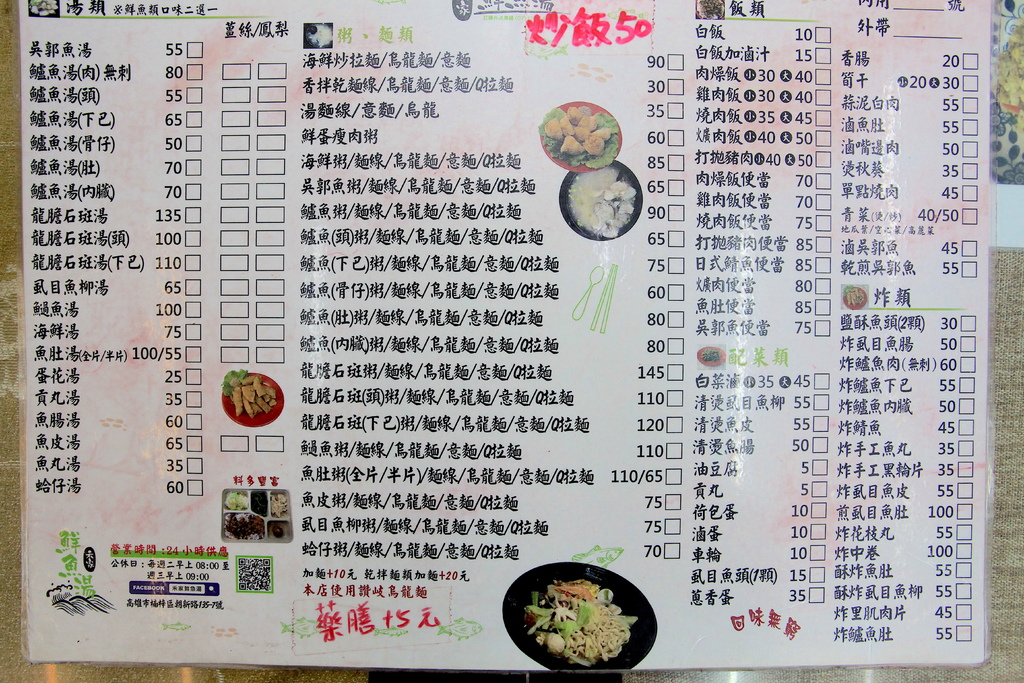 湯類 ※鮮魚類口味二選一
薑絲/鳳梨
吳郭魚湯 55
鱸魚湯(肉)無刺 80
鱸魚湯(頭) 55
鱸魚湯(下巴) 65
鱸魚湯(骨仔) 50
鱸魚湯(肚) 70
鱸魚湯(內臟) 70
龍膽石斑湯 135
龍膽石斑湯(頭) 100
龍膽石斑湯(下巴) 110
虱目魚柳湯 65
鮸魚湯 100
海鮮湯 75
魚肚湯(全片/半片) 100/55
蛋花湯 25
貢丸湯 35
魚腸湯 60
魚皮湯 65
魚丸湯 35
蛤仔湯 60
料多豐富
鮮魚湯
營業時間:24小時供應
公休日:每週二早上08:00至
週三早上09:00
FACEBOOK
高雄市楠梓區朝新路135-7號
炒飯50
粥、麵類
海鮮炒拉麵/烏龍麵/意麵 90
香拌乾麵線/烏龍麵/意麵/Q拉麵 30
湯麵線/意麵/烏龍 35
鮮蛋瘦肉粥 60
海鮮粥/麵線/烏龍麵/意麵/Q拉麵 85
吳郭魚粥/麵線/烏龍麵/意麵/Q拉麵 65
鱸魚粥/麵線/烏龍麵/意麵/Q拉麵 90
鱸魚(頭)粥/麵線/烏龍麵/意麵/Q拉麵 65
鱸魚(下巴)粥/麵線/烏龍麵/意麵/Q拉麵 75
鱸魚(骨仔)粥/麵線/烏龍麵/意麵/Q拉麵 60
鱸魚(肚)粥/麵線/烏龍麵/意麵/Q拉麵 80
鱸魚(內臟)粥/麵線/烏龍麵/意麵/Q拉麵 80
龍膽石斑粥/麵線/烏龍麵/意麵/Q拉麵 145
龍膽石斑(頭)粥/麵線/烏龍麵/意麵/Q拉麵 110
龍膽石斑(下巴)粥/麵線/烏龍麵/意麵/Q拉麵 120
鮸魚粥/麵線/烏龍麵/意麵/Q拉麵 110
魚肚粥(全片/半片)/麵線/烏龍麵/意麵/Q拉麵 110/65
魚皮粥/麵線/烏龍麵/意麵/Q拉麵 75
虱目魚柳粥/麵線/烏龍麵/意麵/Q拉麵 75
蛤仔粥/麵線/烏龍麵/意麵/Q拉麵 70
加麵+10元 乾拌麵類加麵+20元
本店使用讚岐烏龍麵
藥膳+5元
飯類
白飯 10
白飯加滷汁 15
肉燥飯 小30 大40
雞肉飯 小30 大40
燒肉飯 小35 大45
爌肉飯 小40 大50
打拋豬肉 小40 大50
肉燥飯便當 70
雞肉飯便當 70
燒肉飯便當 75
打拋豬肉便當 85
日式鯖魚便當 85
爌肉便當 80
魚肚便當 80
吳郭魚便當 75
配菜類
白菜滷 小35 大45
清燙虱目魚柳 55
清燙魚皮 55
清燙魚腸 50
油豆腐 5
貢丸 5
荷包蛋 10
滷蛋 10
車輪 10
虱目魚頭(1顆) 15
蔥香蛋 35
回味無窮
內用 號
外帶
香腸 20
筍干 小20 大30
蒜泥白肉 55
滷魚肚 55
滷嘴邊肉 50
燙秋葵 35
單點燒肉 45
青菜(燙/炒) 40/50
地瓜葉/空心菜/高麗菜
滷吳郭魚 45
乾煎吳郭魚 55
炸類
鹽酥魚頭(2顆) 30
炸虱目魚腸 50
炸鱸魚肉(無刺) 60
炸鱸魚下巴 55
炸鱸魚內臟 50
炸鯖魚 45
炸手工魚丸 35
炸手工黑輪片 35
炸虱目魚皮 55
煎虱目魚肚 100
炸花枝丸 55
炸中卷 100
酥炸魚肚 55
酥炸虱目魚柳 55
炸里肌肉片 45
炸鱸魚肚 55